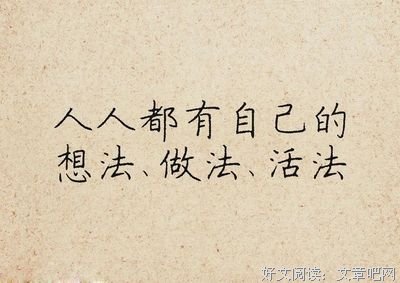 人人都有自己的
想法、做法、活法
好文阅读：文章吧网